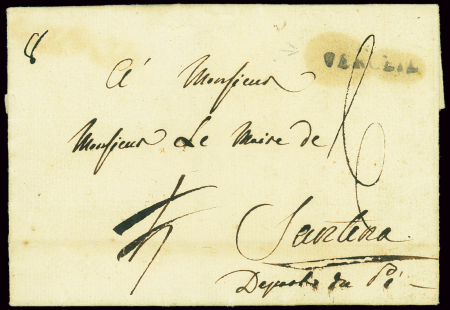 8
VERCEIL
A Monsieur
Monsieur Le Maire de
Santena
Depart. du Pô